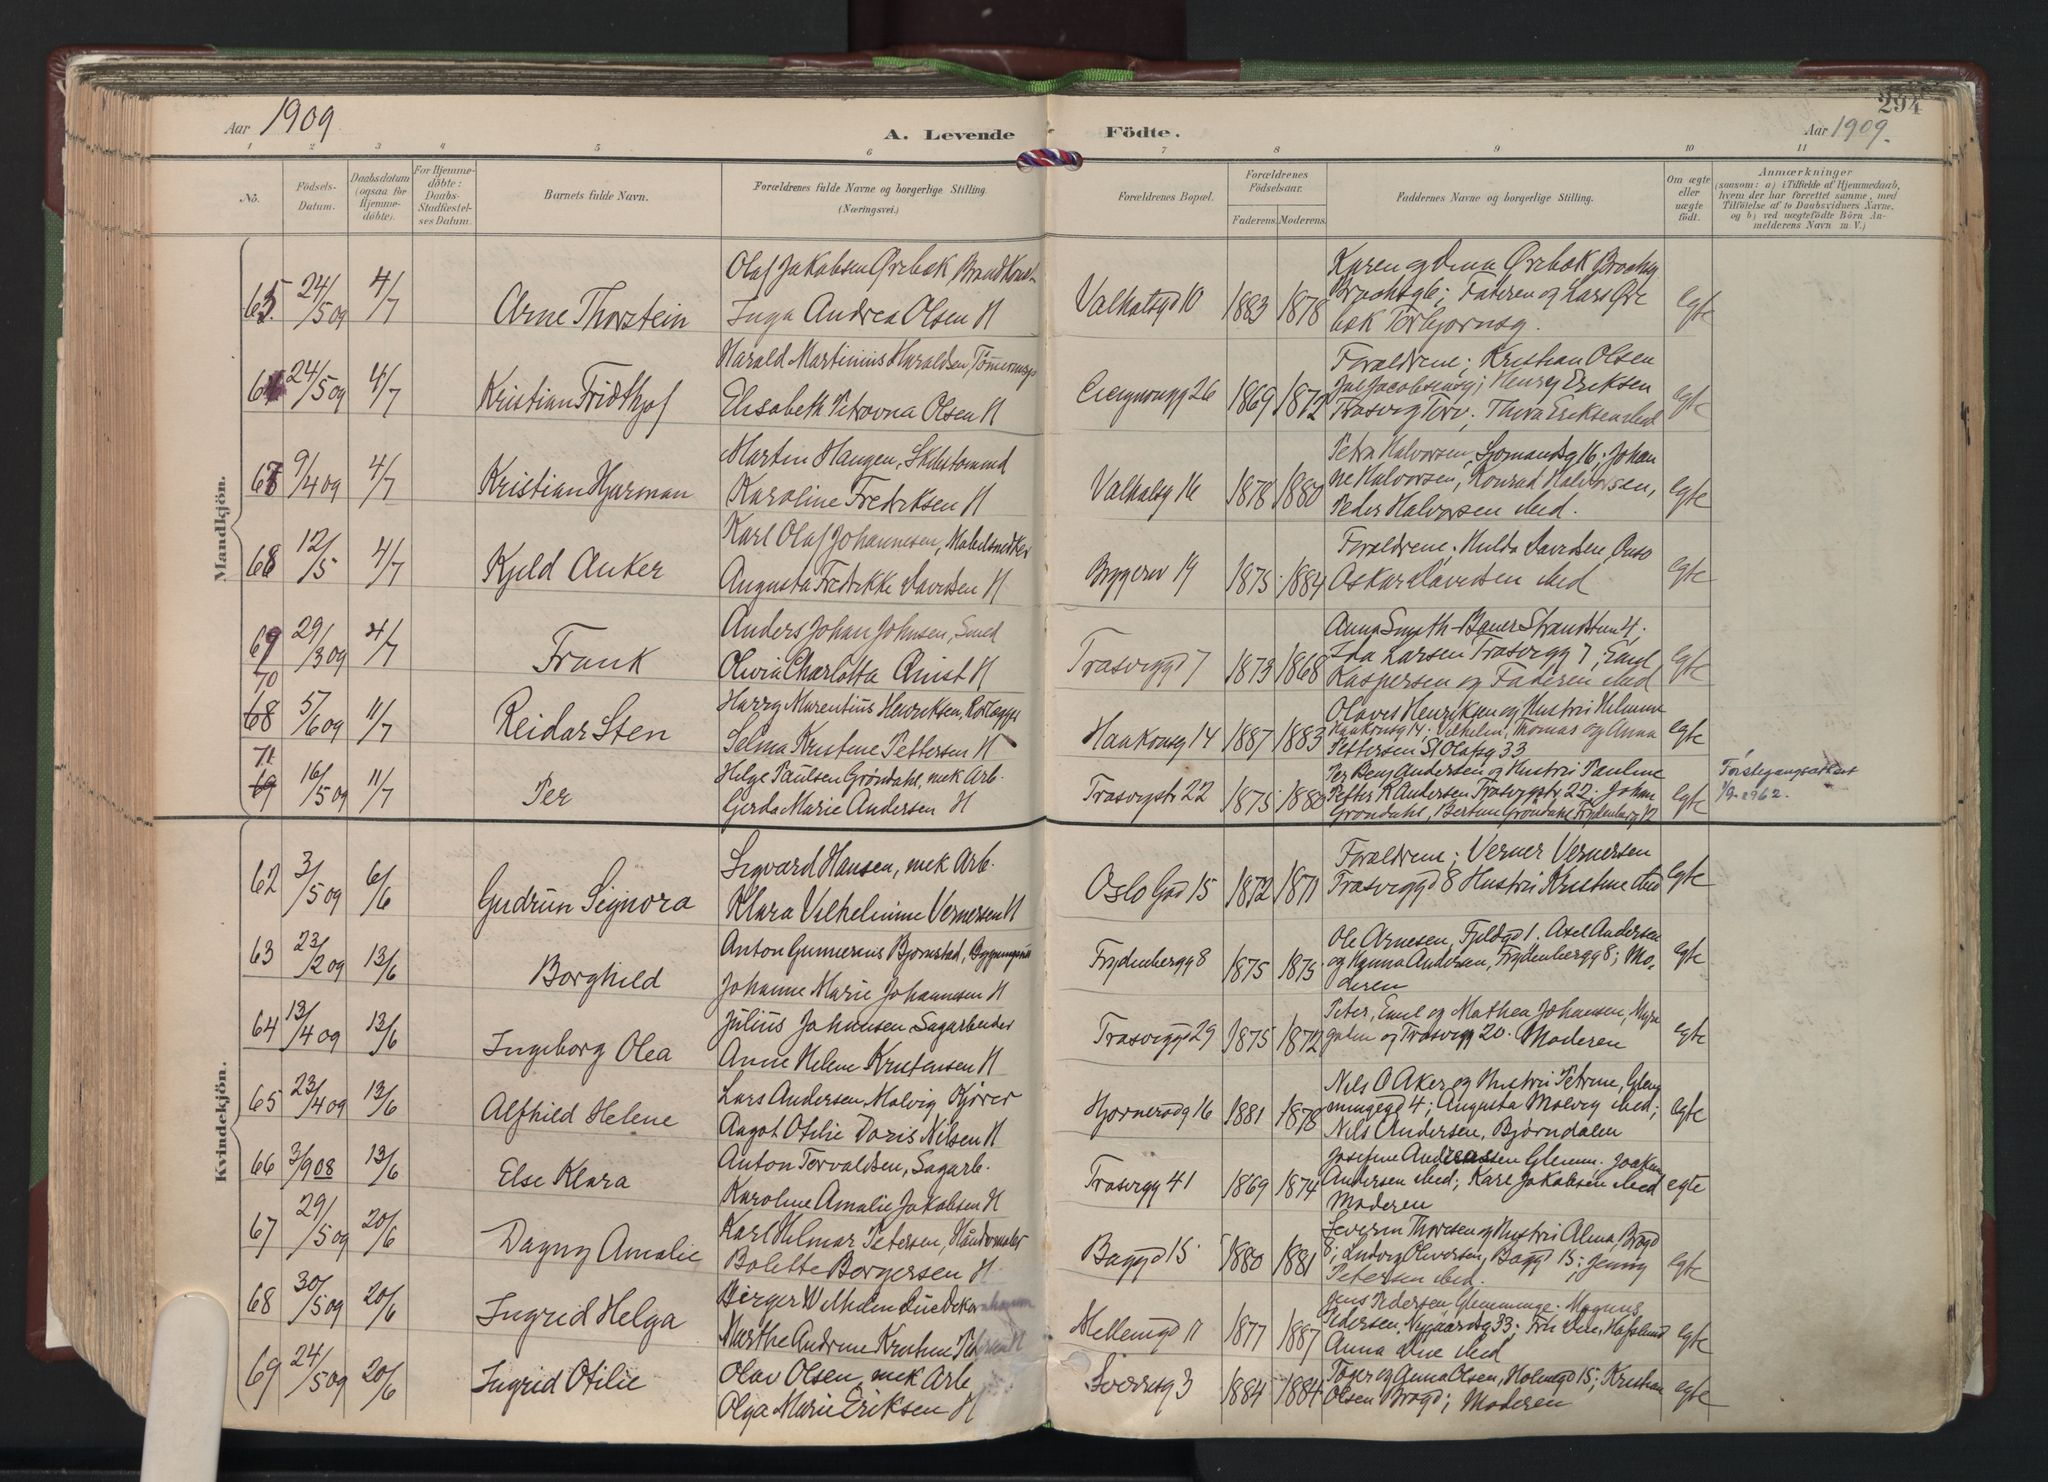 294
Aar 1909
A. Levende Födte.
Aar 1909.
1 2 3 4 5 6 7 8 9 10 11
No.
Födsels-Datum.
Daabsdatum (ogsaa for Hjemmedöbte).
For Hjemmedöbte: Daabs-Stadfæstelses Datum.
Barnets fulde Navn.
Forældrenes fulde Navne og borgerlige Stilling. (Næringsvei.)
Forældrenes Bopæl.
Forældrenes Födselsaar.
Faderens. Moderens.
Faddernes Navne og borgerlige Stilling.
Om ægte eller uægte födt.
Anmærkninger
(saasom: a) i Tilfælde af Hjemmedaab, hvem der har forrettet samme, med Tilföielse af to Daabsvidners Navne. og b) ved uægtefödte Börn Anmelderens Navn m. V.)
Mandkjön.
65. 24/5 09 4/7 Arne Thorstein
Olaf Jakobsen Ørebæk Brandkonst.
Inga Andrea Olsen H
Valhalsgd 10 1883 1878
Karen og Dina Ørebæk Brochsg
Brochsg 6; Faderen og Lars Øre
bæk Torbjornsg.
Egte
66 24/5 09 4/7 Kristian Fridthjof
Harald Martinius Haraldsen, Tømermaps
Elisabeth Petrovna Olsen H
26 1869 1872
Forældrene; Kristian Olsen
Jacobsensg; Henry Eriksen
Trosvig Torv; Thora Eriksen ibid
egte
67 9/4 09 4/7 Kristian Hjarman
Martin Haugen, Skibstømmd
Karoline Fredriksen H
Valhalsg 16 1878 1880
Petra Halvorsen, Sjomandsg 16; Johan
ne Halvorsen, Konrad Halvorsen,
Peder Halvorsen ibid.
egte
68 12/5 4/7 Kjeld Anker
Karl Olaf Johannesen, Møbelsnedker
Augusta Fredrikke Davidsen H
19 1875 1884
Forældrene; Hulda Davidsen, Onso
Oskar Davidsen ibid
egte
69 29/3 09 4/7 Frank
Anders Johan Johnsen, Smed
Olivia Charlotta Qvist H
Trosviggd 7 1873 1868
Anna Smyth-Bauer Strandstien 4;
Ida Larsen Trosvigg 7; Emil
Kaspersen og Faderen ibid
Egte
70
68 5/6 09 11/7 Reidar Sten
Harry Marentius Henriksen,
Selma Kristine Pettersen H
Haakonsg 14 1887 1883
Olaves Henriksen og Hustru Helmine
Haakonsg 14; Vilhelm, Thomas og Anna
Pettersen St Olafsg 33
egte
71
69 16/5 09 11/7 Per
Helge Paulsen Grøndahl, mek Arb.
Gerda Marie Andersen H
Trosvigstr 22 1875 1880
Per Benj Andersen og Hustru Pauline
Petter K Andersen Trosvigstr 22; Johan
Grondahl, Bertine Grøndahl Frydenberg 12
egte
Førstegangsattest
1/9 1962.
Kvindekjön.
62 3/5 09 6/6 Gudrun Signora
Sigvard Hansen, mek Arb.
Klara Vilhelmine Vernersen H
Oslo Gad 15 1872 1871
Forældrene; Verner Vernersen
Trosviggd 8 Hustru Kristine ibid
egte
63 23/2 09 13/6 Borghild
Anton Gunnerius Bjornstad,
Johanne Marie Johannesen H
Frydenbergg 8 1875 1875
Ole Arnesen, Fjeldgd 1. Axel Andersen
og Hanna Andersen, Frydenbergg 8; Mo-
deren
egte
64 13/4 09 13/6 Ingeborg Olea
Julius Johansen Sagarbeider
Anne Helene Kristensen H
Trosviggd 29 1875 1872
Peter, Emil og Mathea Johansen, Myra
gaden og Trosvigg 20. Moderen
egte
65 23/4 09 13/6 Alfhild Helene
Lars Andersen Molvig Kjører
Angot Otilie Doris Nilsen H
Hjornerodg 16 1881 1878
Nils O Aker og Hustru Petrine, Glem
mingegd 4; Augusta Molvig ibid;
Nils Andersen, Bjørndalen
egte
66 3/9 08 13/6 Else Klara
Anton Torvaldsen, Sagarb.
Karoline Amalie Jakobsen H
Trosvigg 41 1869 1874
Josefine Andreassen Glemm. Joakim
Andersen ibid; Karl Jakobsen ibid
Moderen
egte
67 29/5 09 20/6 Dagny Amalie
Karl Hilmar Petersen, Håndvmaler
Bolette Borgersen H
Baggd 15 1880 1881
Severin Thoresen og Hustru Alma, Brogd
8; Ludvig Oliversen, Baggd 15; Jenny
Petersen ibid.
Egte
68 30/5 09 20/6 Ingrid Helga
Birger Wilhelm Due
Marthe Andrine Kristine H
Mellemgd 11 1877 1887
Jens Pedersen, Glemminge. Magnus
Pedersen, Nygaardsg 33; Frk Due, Hafslund
Anna Due ibid
egte
69 24/5 09 20/6 Ingrid Otilie
Olav Olsen, mek Arb
Olga Marie Eriksen H
Sverresg 3 1884 1884
Tøger og Anna Olsen, Holmegd 15; Kristian
Olsen Brogd; Moderen
egte